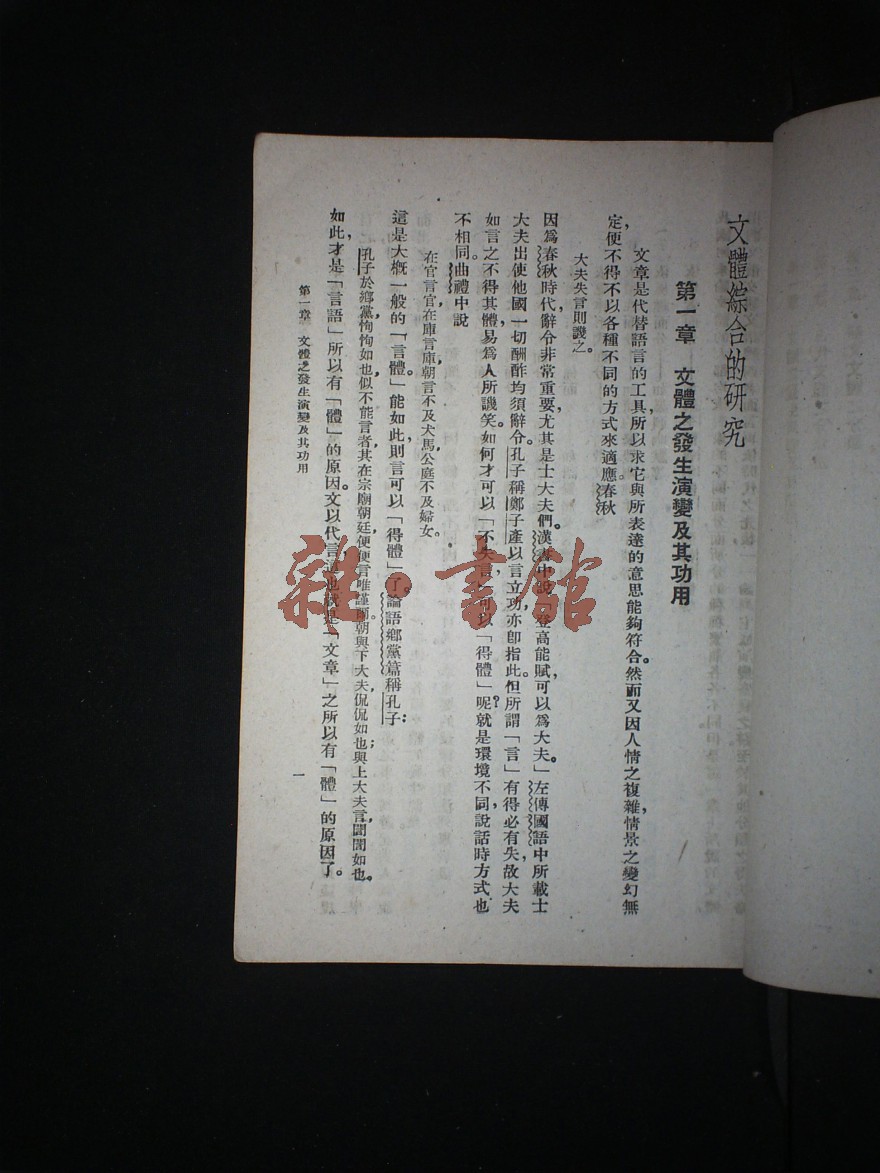 文體綜合的研究
第一章　文體之發生演變及其功用
文章是代替語言的工具，所以求它與所表達的意思能夠符合。然而又因人情之複雜，情景之變幻無
定，便不得不以各種不同的方式來適應。春秋
大夫失言則譏之。
因爲春秋時代，辭令非常重要，尤其是士大夫們。漢書中說，「登高能賦，可以爲大夫。」左傳國語中所載士
大夫出使他國，一切酬酢，均須辭令。孔子稱鄭子產以言立功，亦卽指此。但所謂「言」有得必有失，故大夫
如言之不得其體，易爲人所譏笑。如何才可以「不失言」可以「得體」呢？就是環境不同，說話時方式也
不相同。曲禮中說
在官言官，在庫言庫，朝言不及犬馬，公庭不及婦女。
這是大概一般的「言體」能如此，則言可以「得體」了。論語鄉黨篇稱孔子：
孔子於鄉黨，恂恂如也，似不能言者，其在宗廟朝廷，便便言，唯謹爾。朝，與下大夫，侃侃如也；與上大夫言，誾誾如也。
如此，才是「言語」所以有「體」的原因。文以代言，這也就是「文章」之所以有「體」的原因了。
第一章　文體之發生演變及其功用
一
雜·書館